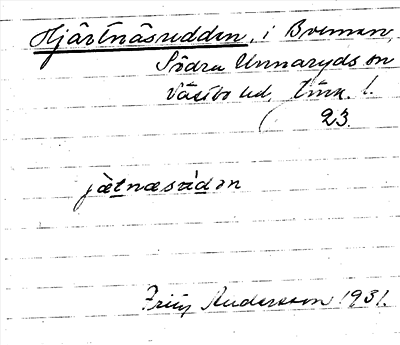 Hjärtnäsudden, i Bven,
Södra Unnaryds sn
Västbo hd, Jönk. l.
23
jætnæsùdən
Frits Andersson 1931.